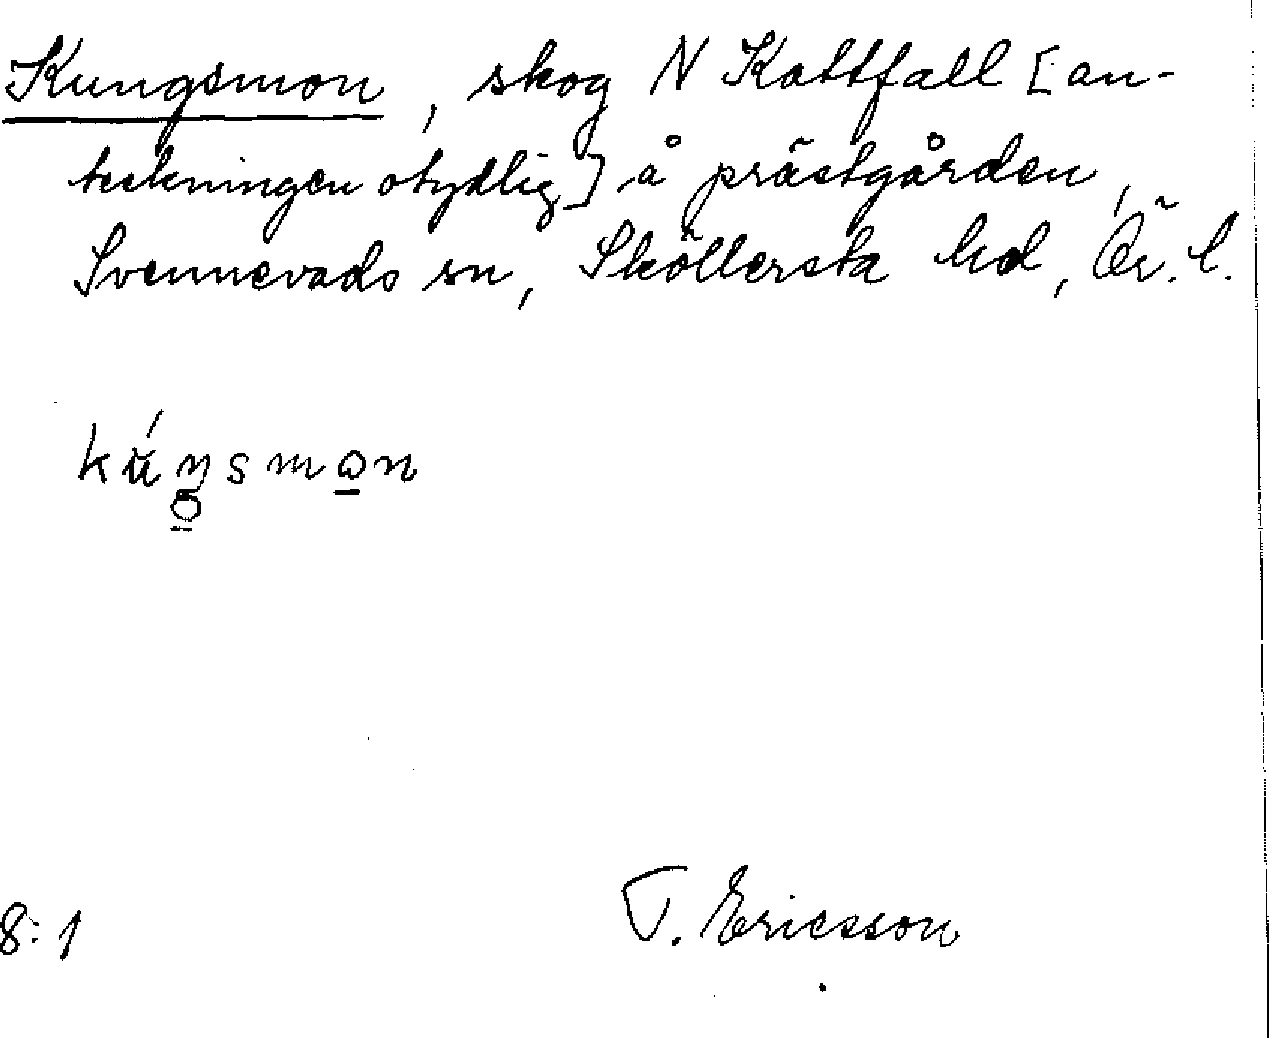 Kungsmon, skog N Kattfall [an-
teckningen otydlig] å prästgården,
Svennevads sn, Sköllersta hd, Ör. l.
kúŋsmon
8:1
T. Ericsson